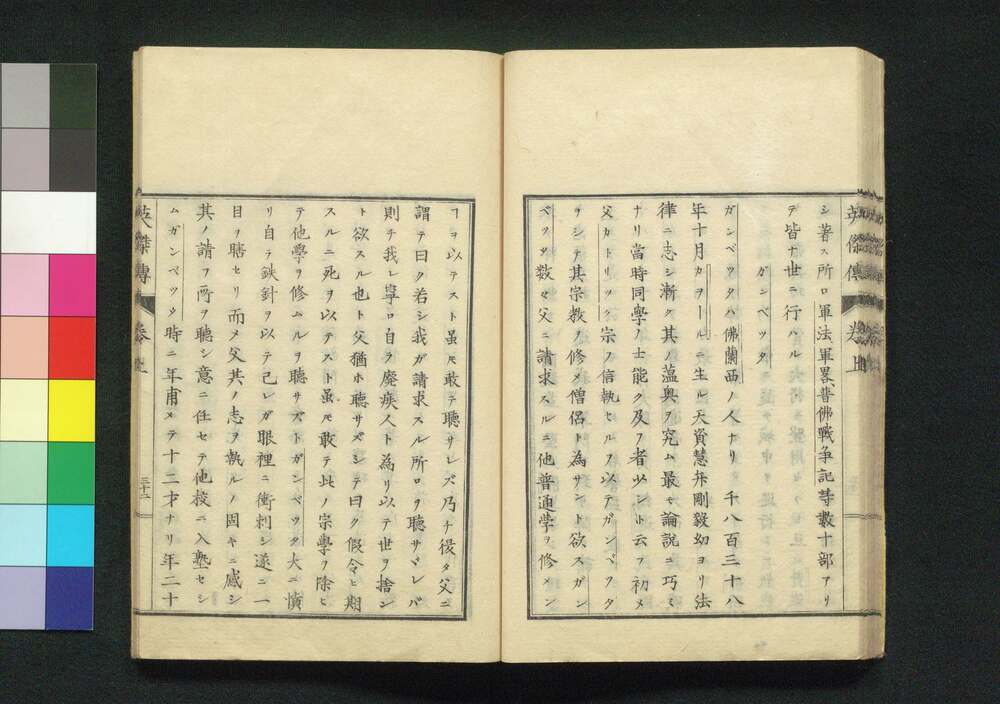 シ著ス所ロ軍法軍畧普佛戰争記等數十部アリ
テ皆ナ世ニ行ハル
ガンベッタ
ガンベッタハ佛蘭西ノ人ナリ千八百三十八
年十月カヲールニ生ル天資慧弁剛毅幼ヨリ法
律ニ志シ漸ク其ノ蘊奥ヲ究ム最モ論説ニ巧ミ
ナリ當時同學ノ士能ク及フ者少ント云フ初メ
父カトリック宗ヲ信執セルヲ以テガンベッタ
ヲシテ其宗教ヲ修メ僧侶ト為サント欲スガン
ベツタ数々父ニ請求スルニ他普通學ヲ修メン
英傑傳
卷
ヿヲ以テスト虽𪜈敢テ聴サレズ乃チ復タ父ニ
謂テ曰ク若シ我ガ請求スル所ロヲ聴サヾレバ
則チ我レ寧ロ自ラ廃疾人ト為リ以テ世ヲ捨ン
ト欲スル也ト父猶ホ聴サズシテ曰ク假令ヒ期
スルニ死ヲ以テスト虽𪜈敢テ此ノ宗學ヲ除ヒ
テ他學ヲ修ムルヲ聴サズトガンベッタ大ニ憤
リ自ラ鉄針ヲ以テ己レガ眼裡ニ衝刺シ遂ニ一
目ヲ瞎セリ而メ父其ノ志ヲ執ルノ固キニ感シ
其ノ請フ所ヲ聴シ意ニ任セテ他校ニ入塾セシ
ムガンベツタ時ニ年甫メテ十二才ナリ年二十
英傑傳
卷
三十二